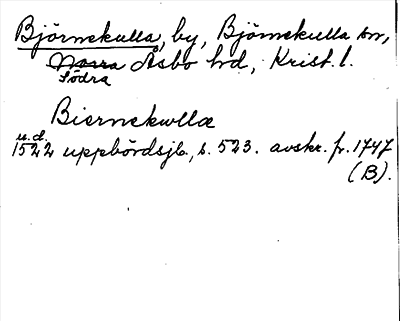 Björnekulla, by, Björnekulla sn,
Norra Åsbo hd, Krist. l.
Södra
Biernekwllæ
u.d.
1522 uppbördsjb., s. 523. avskr. fr. 1747
(B).